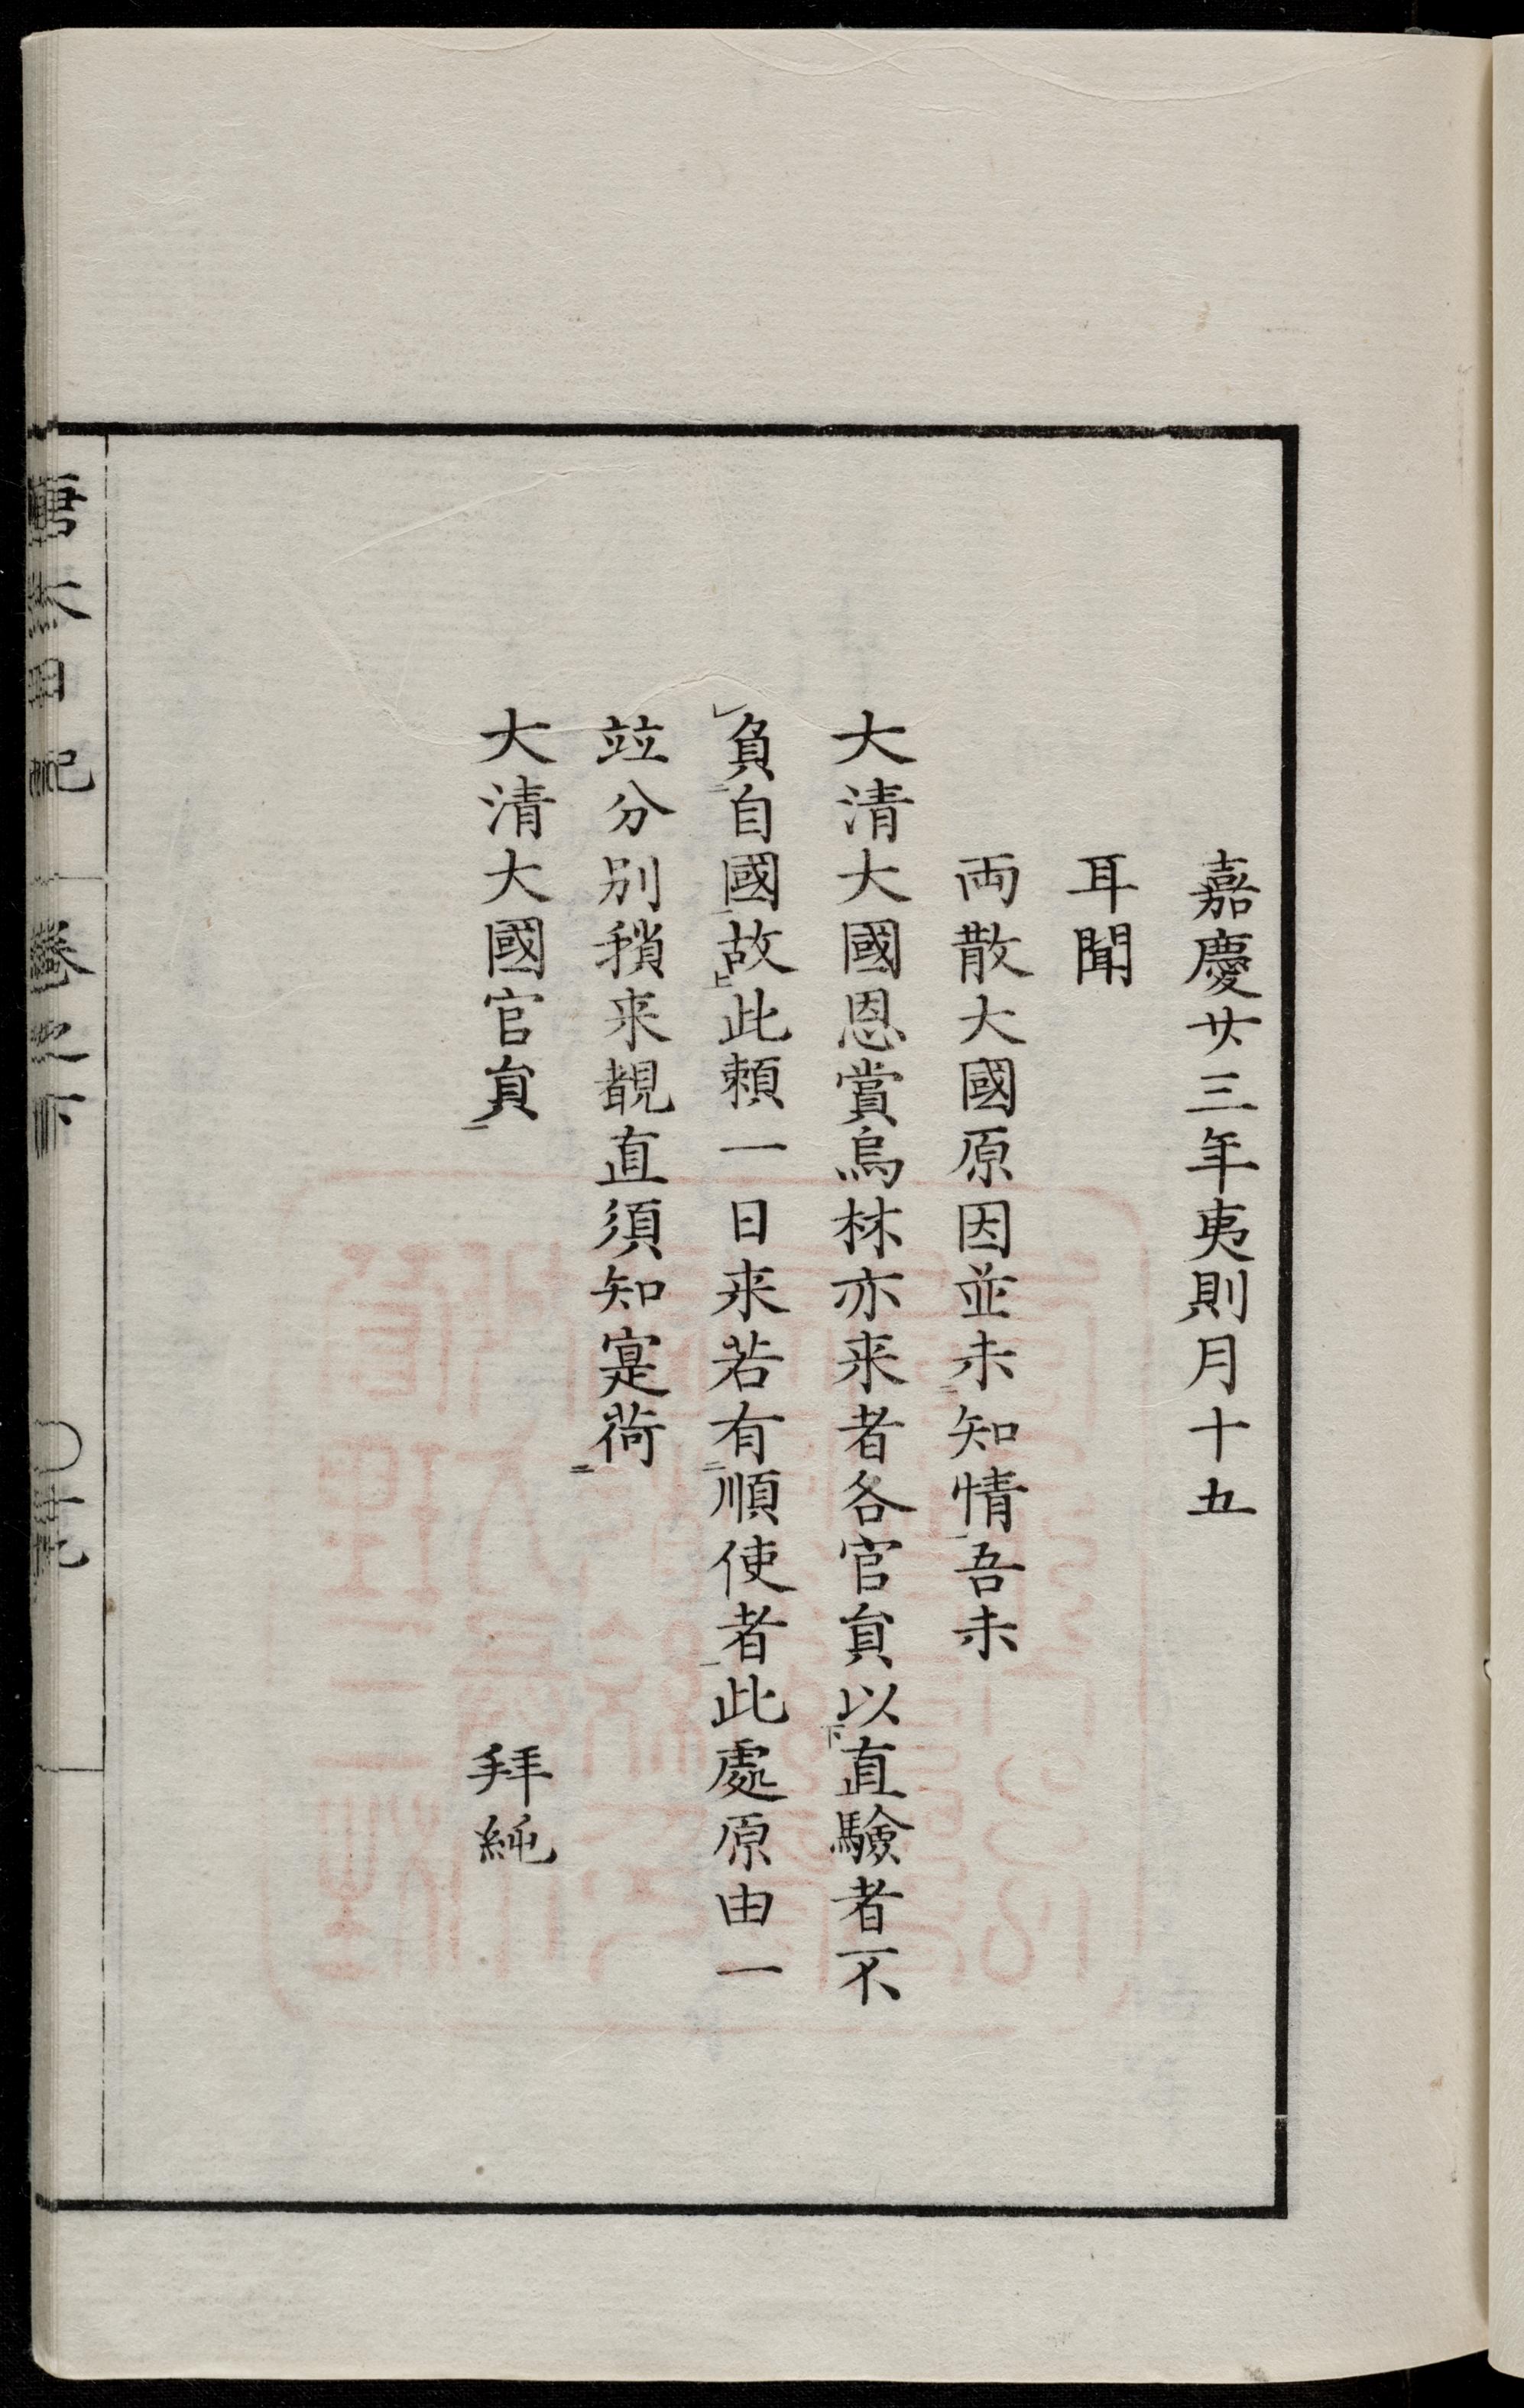 嘉慶廿三年夷則月十五
耳聞
両散大國原因並未知情吾未
大清大國恩賞烏林亦来者各官貟以直驗者不
負自國故此頼一日来若有順使者此處原由一
竝分別稍来覩直須知寔荷
大清大國官貟
拜純